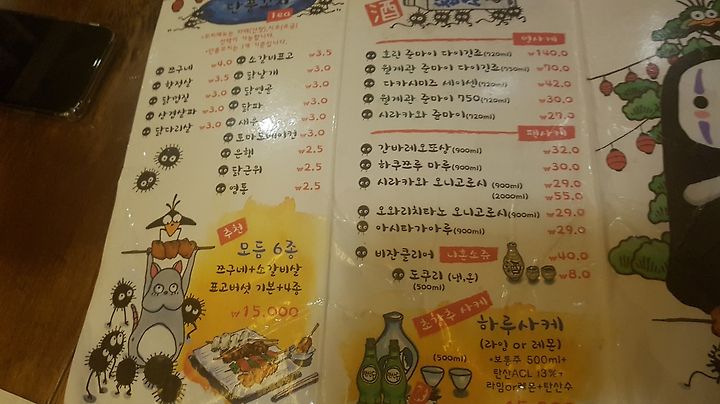 단품꼬치
1ea
쯔구네 ₩4.0
항정살 ₩3.5
닭껍질 ₩3.0
삼겹살파 ₩3.0
닭다리살 ₩3.0
소갈비표고 ₩3.5
닭날개 ₩3.5
닭연골 ₩3.0
닭파 ₩3.0
새우 ₩3.0
토마토베이컨 ₩3.0
은행 ₩2.5
닭근위 ₩2.5
염통 ₩2.5
추천
모듬 6종
쯔구네+소갈비살
표고버섯 기본+4종
₩15,000
酒
병사케
호린 준마이 다이긴죠(720ml) ₩140.0
월계관 준마이 다이긴죠(750ml) ₩70.0
다카시미즈 세이센(720ml) ₩42.0
월계관 준마이 750(720ml) ₩30.0
시라카와 준마이(720ml) ₩27.0
팩사케
간바레오또상(900ml) ₩32.0
하쿠쯔루 마루(900ml) ₩30.0
시라카와 오니고로시(900ml) ₩29.0
(2000ml) ₩55.0
오와리치타노 오니고로시(900ml) ₩29.0
아시타가아루(900ml) ₩29.0
비잔클리어 나혼소쥬 ₩40.0
도쿠리 (냉,온) ₩8.0
(500ml)
하루사케
(라임 or 레몬)
(500ml)
*보통주 500ml+
탄산ACL 13%
라임or레몬+탄산수